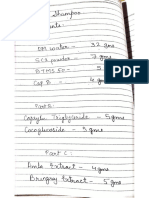 Shampoo
ents:
DM water - 32 gms
SCI powder - 7 gms
BTMS 50 - 5 gms
Cap B - 4 gms
Part B:
Caprylic Triglyceride - 5 gms
Cocoglucoside - 5 gms
Part C:
Amla Extract - 4 gms
Bringraj Extract - 5 gms